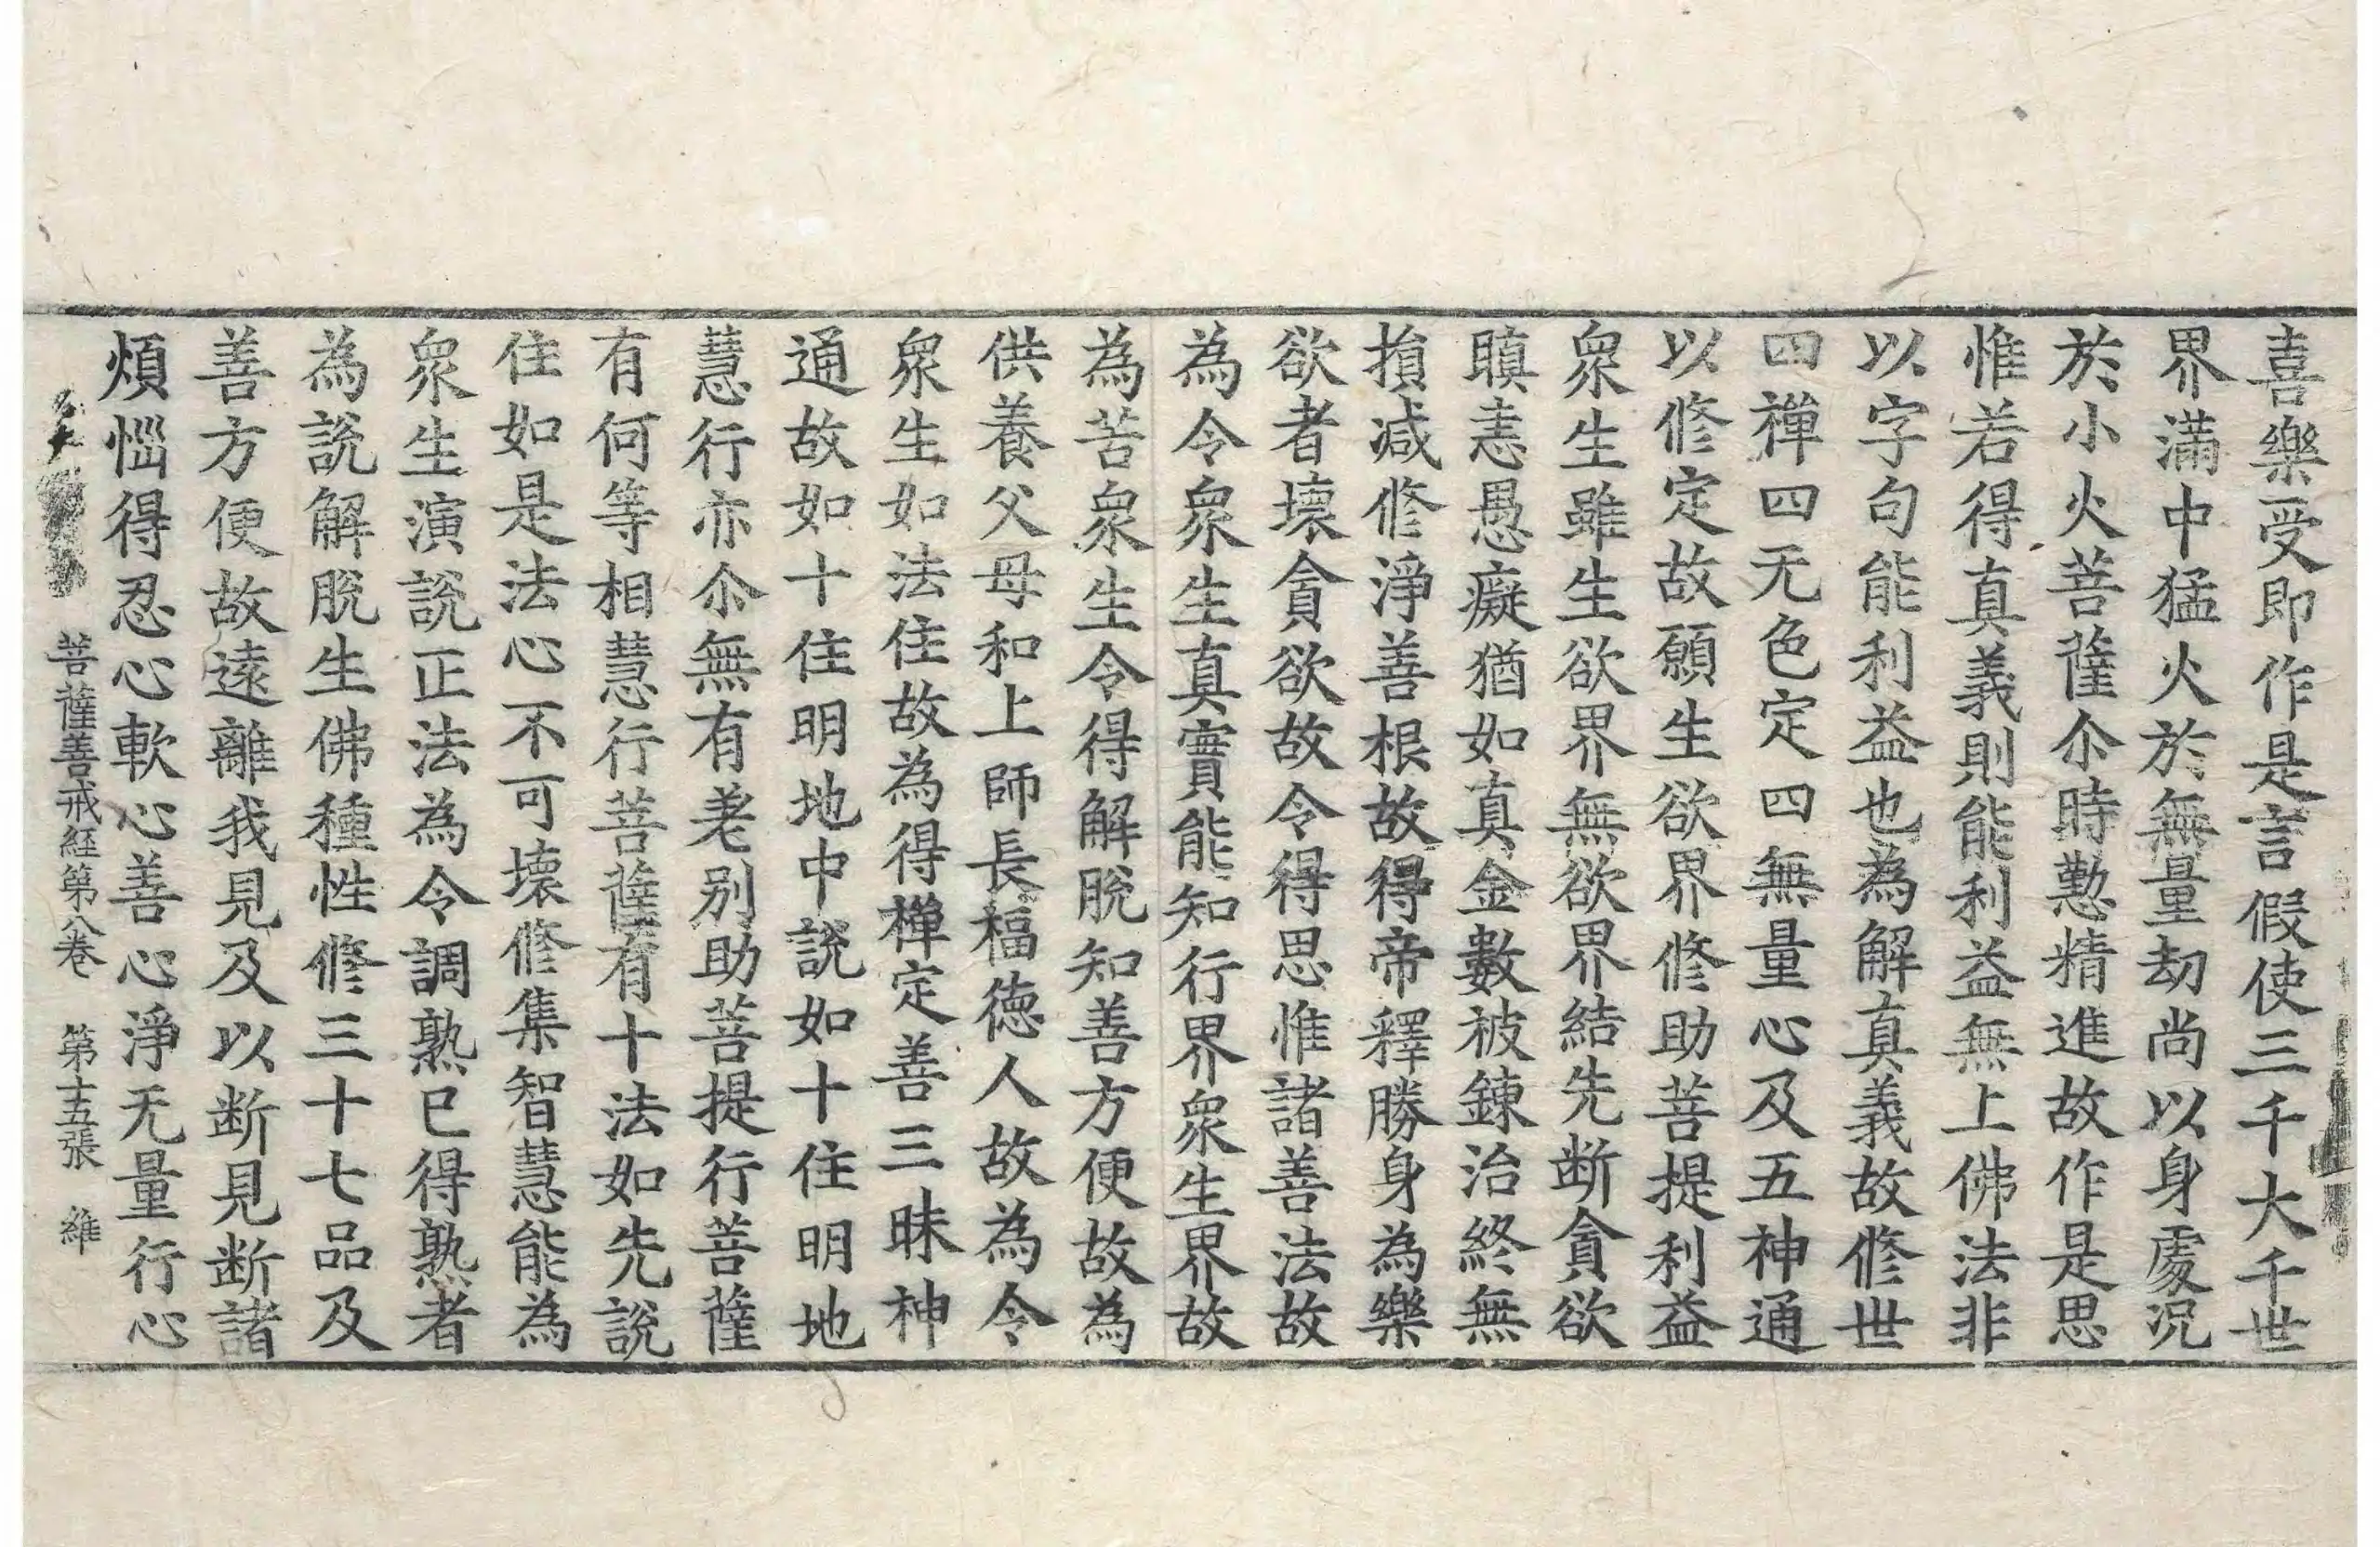 喜樂受即作是言假使三千大千世
界滿中猛火於無量劫尚以身處況
於小火菩薩尒時懃精進故作是思
惟若得真義則能利益無上佛法非
以字句能利益也為解真義故修世
四禪四无色定四無量心及五神通
以修定故願生欲界修助菩提利益
衆生雖生欲界無欲界結先断貪欲
瞋恚愚癡猶如真金數被鍊治終無
損减修淨善根故得帝釋勝身為樂
欲者壞貪欲故令得思惟諸善法故
為令衆生真實能知行界衆生界故
為苦衆生令得解脫知善方便故為
供養父母和上師長福德人故為令
衆生如法住故為得禪定善三昧神
通故如十住明地中說如十住明地
慧行亦尒無有差別助菩提行菩薩
有何等相慧行菩薩有十法如先說
住如是法心不可壞修集智慧能為
衆生演說正法為令調熟已得熟者
為說解脫生佛種性修三十七品及
善方便故遠離我見及以断見断諸
煩惱得忍心軟心善心淨无量行心
菩薩善戒経第八卷 第十五張 維